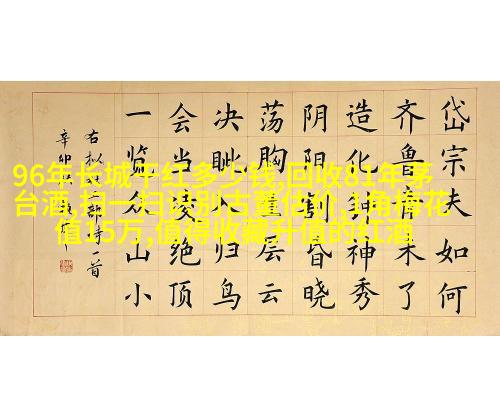 96年长城干红多少钱,回收81年茅
台酒,扫一扫识别古董估价,1角梅花
值15万,值得收藏升值的红酒
岱宗夫如何
齐鲁青未了
造化钟神秀
阴阳割昏晓
荡胸生层云
决眦入归鸟
会当凌绝顶
一览众山小
右 一首
辛卯